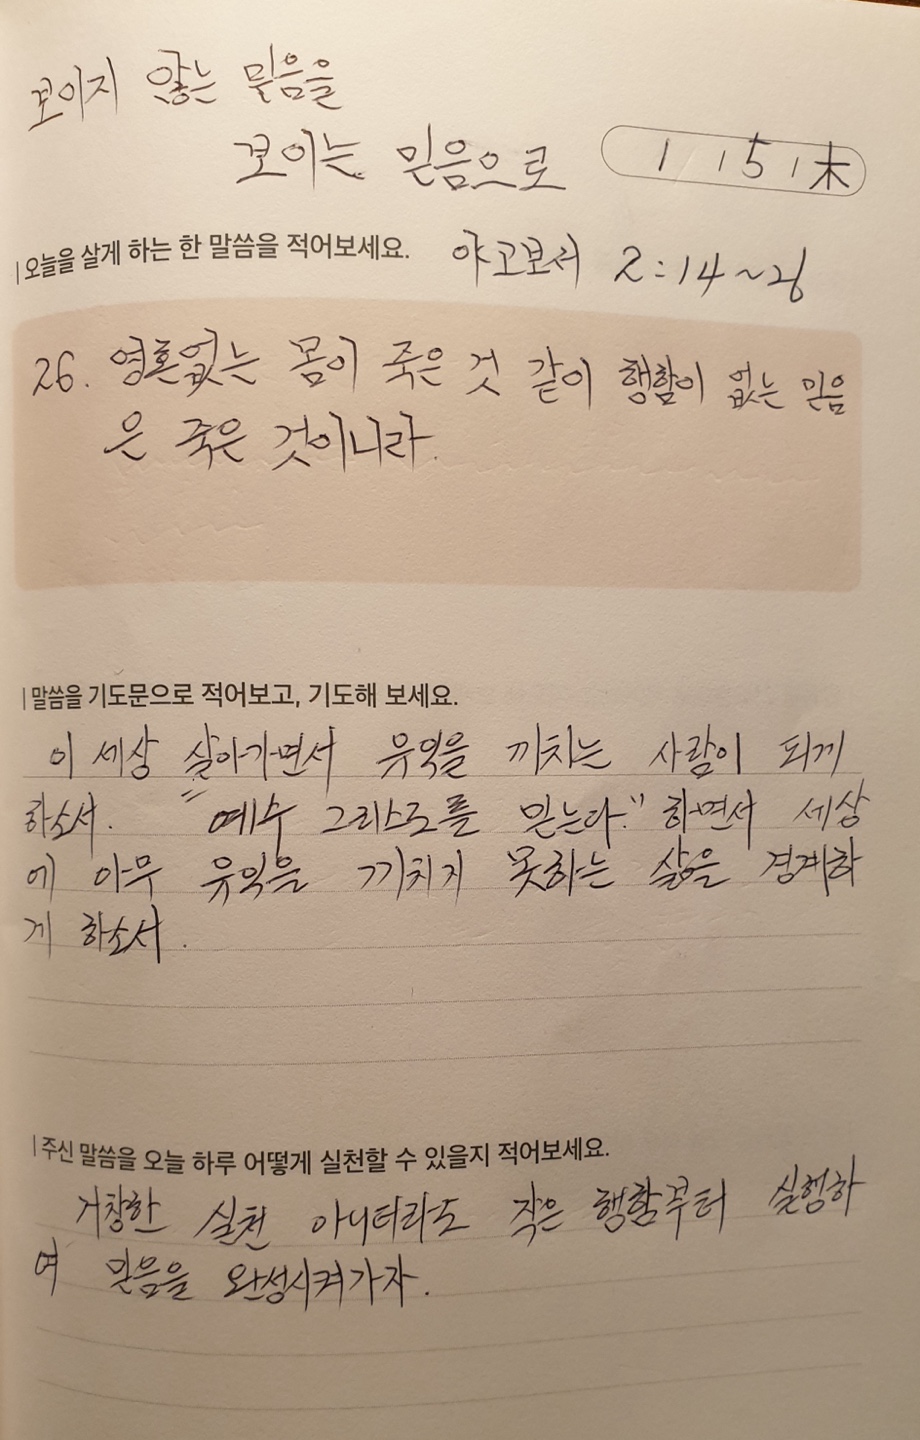 보이지 않는 믿음을
보이는 믿음으로
1 / 15 / 木
오늘을 살게 하는 한 말씀을 적어보세요. 야고보서 2:14~26
26. 영혼없는 몸이 죽은 것 같이 행함이 없는 믿음
은 죽은 것이니라.
말씀을 기도문으로 적어보고, 기도해 보세요.
이 세상 살아가면서 유익을 끼치는 사람이 되게
하소서. "예수 그리스도를 믿는다." 하면서 세상
에 아무 유익을 끼치지 못하는 삶을 경계하
게 하소서.
주신 말씀을 오늘 하루 어떻게 실천할 수 있을지 적어보세요.
거창한 실천 아니더라도 작은 행함부터 실행하
여 믿음을 완성시켜가자.